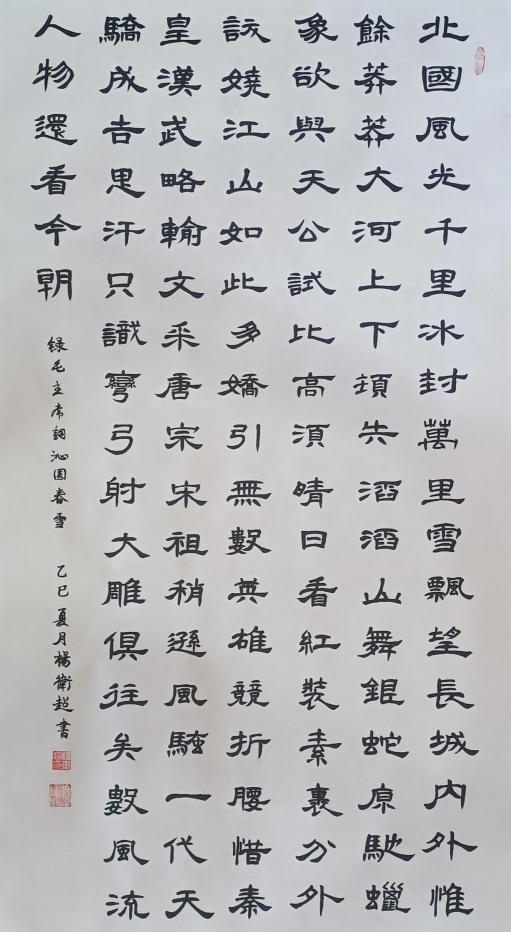 北國風光千里冰封萬里雪飄望長城内外惟
餘莽莽大河上下頓失滔滔山舞銀蛇原馳蠟
象欲與天公試比高須晴日看紅裝素裹分外
訞嬈江山如此多嬌引無數英雄競折腰惜秦
皇漢武略輸文采唐宗宋祖稍遜風騷一代天
驕成吉思汗只識彎弓射大雕俱往矣數風流
人物還看今朝
绿毛主席詞沁园春雪 乙巳夏月楊衛超書